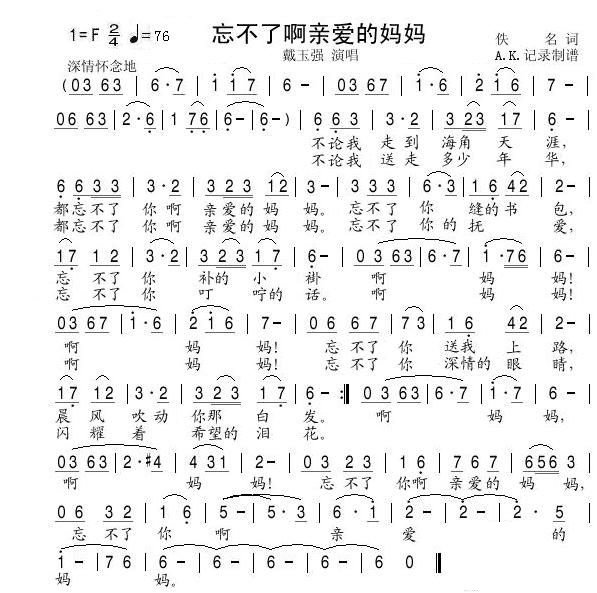 1=F 2/4 ♩=76 忘不了啊亲爱的妈妈 佚 名 词
戴玉强 演唱 A.K.记录制谱
深情怀念地
(03 63 | 6·7 | 1 17 | 6 - | 03 67 | 1·6 | 2 16 | 7 - |
06 63 | 2·6 | 1 76 | 6 - | 6 -) | 6 63 | 3·2 | 3 23 | 17 | 6 - |
不论我 走 到 海角 天 涯,
不论我 送 走 多少 年 华,
6 6 33 | 3·2 | 3 23 | 12 | 3 - | 3 23 | 6·3 | 16 42 | 2 - |
都忘不了 你啊 亲爱的 妈 妈。 忘不了 你 缝的书 包,
都忘不了 你啊 亲爱的 妈 妈。 忘不了 你的 抚 爱,
17 12 | 3·2 | 3 23 | 17 | 3 - | 03 63 | 6·7 | 1·76 | 6 - |
忘 不了 你 补的 小 褂 啊 妈 妈!
忘 不了 你 叮 咛的 话。 啊 妈 妈!
03 67 | 1·6 | 2 16 | 7 - | 06 67 | 73 | 16 42 | 2 - |
啊 妈 妈! 忘 不了 你 送我 上 路,
啊 妈 妈! 忘 不了 你 深情的 眼 睛,
17 12 | 3·2 | 3 23 | 17 | 6 - :‖ 03 63 | 6·7 | 1·7 | 6 - |
晨 风 吹动 你那 白 发。 啊 妈 妈,
闪 耀 着 希望的 泪 花。
03 63 | 2·#4 | 4 31 | 2 - | 03 23 | 16 | 7 67 | 656 3 |
啊 妈 妈! 忘 不了 你啊 亲爱的 妈 妈,
06 32 | 16 | 5 - | 5·3 | 6·1 | 2 - | 2 - | 2 - |
忘 不了 你 啊 亲 爱 的
1 - | 76 | 6 - | 6 - | 6 - | 6 - | 6 0 ‖
妈 妈。